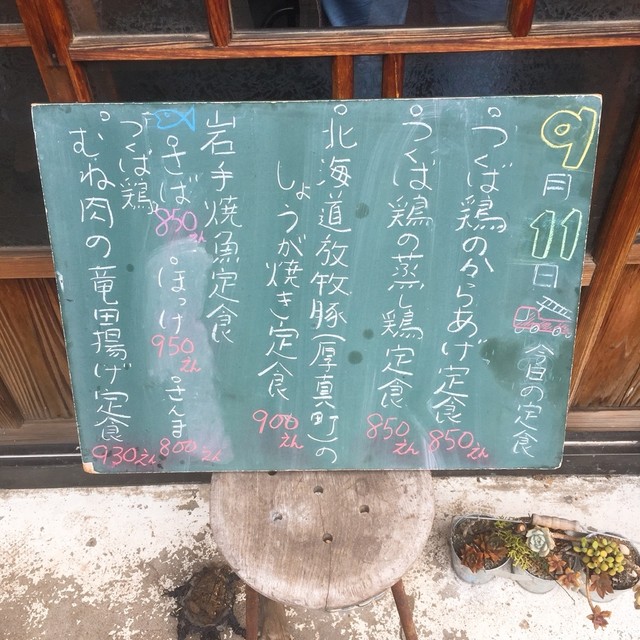 9月11日
今日の定食
つくば鶏のからあげ定食
850えん
つくば鶏の蒸し鶏定食
850えん
北海道放牧豚(厚真町)の
しょうが焼き定食
900えん
岩手焼魚定食
さば
850えん
ほっけ
950えん
さんま
800えん
つくば鶏
むね肉の竜田揚げ定食
930えん